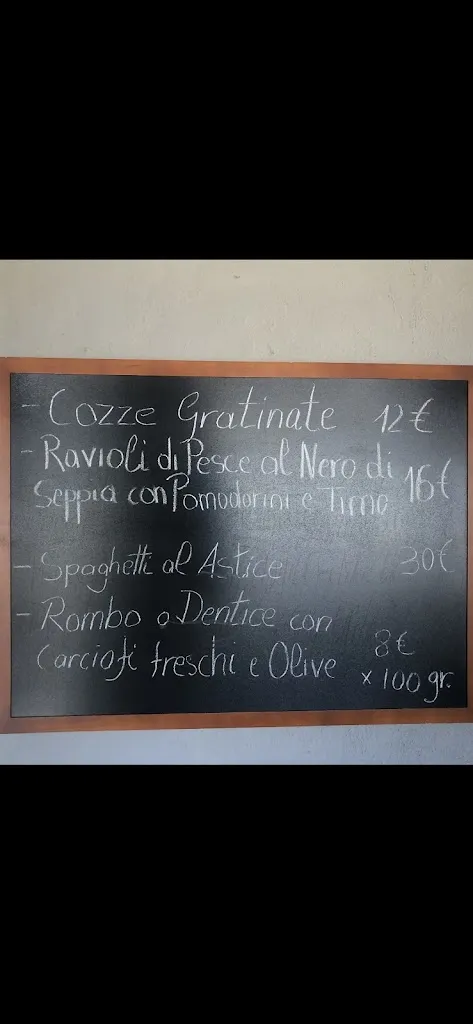 - Cozze Gratinate 12€
- Ravioli di Pesce al Nero di
Seppia con Pomodorini e Timo 16€
- Spaghetti al Astice 30€
- Rombo o Dentice con
Carciofi freschi e Olive 8€
x 100 gr.